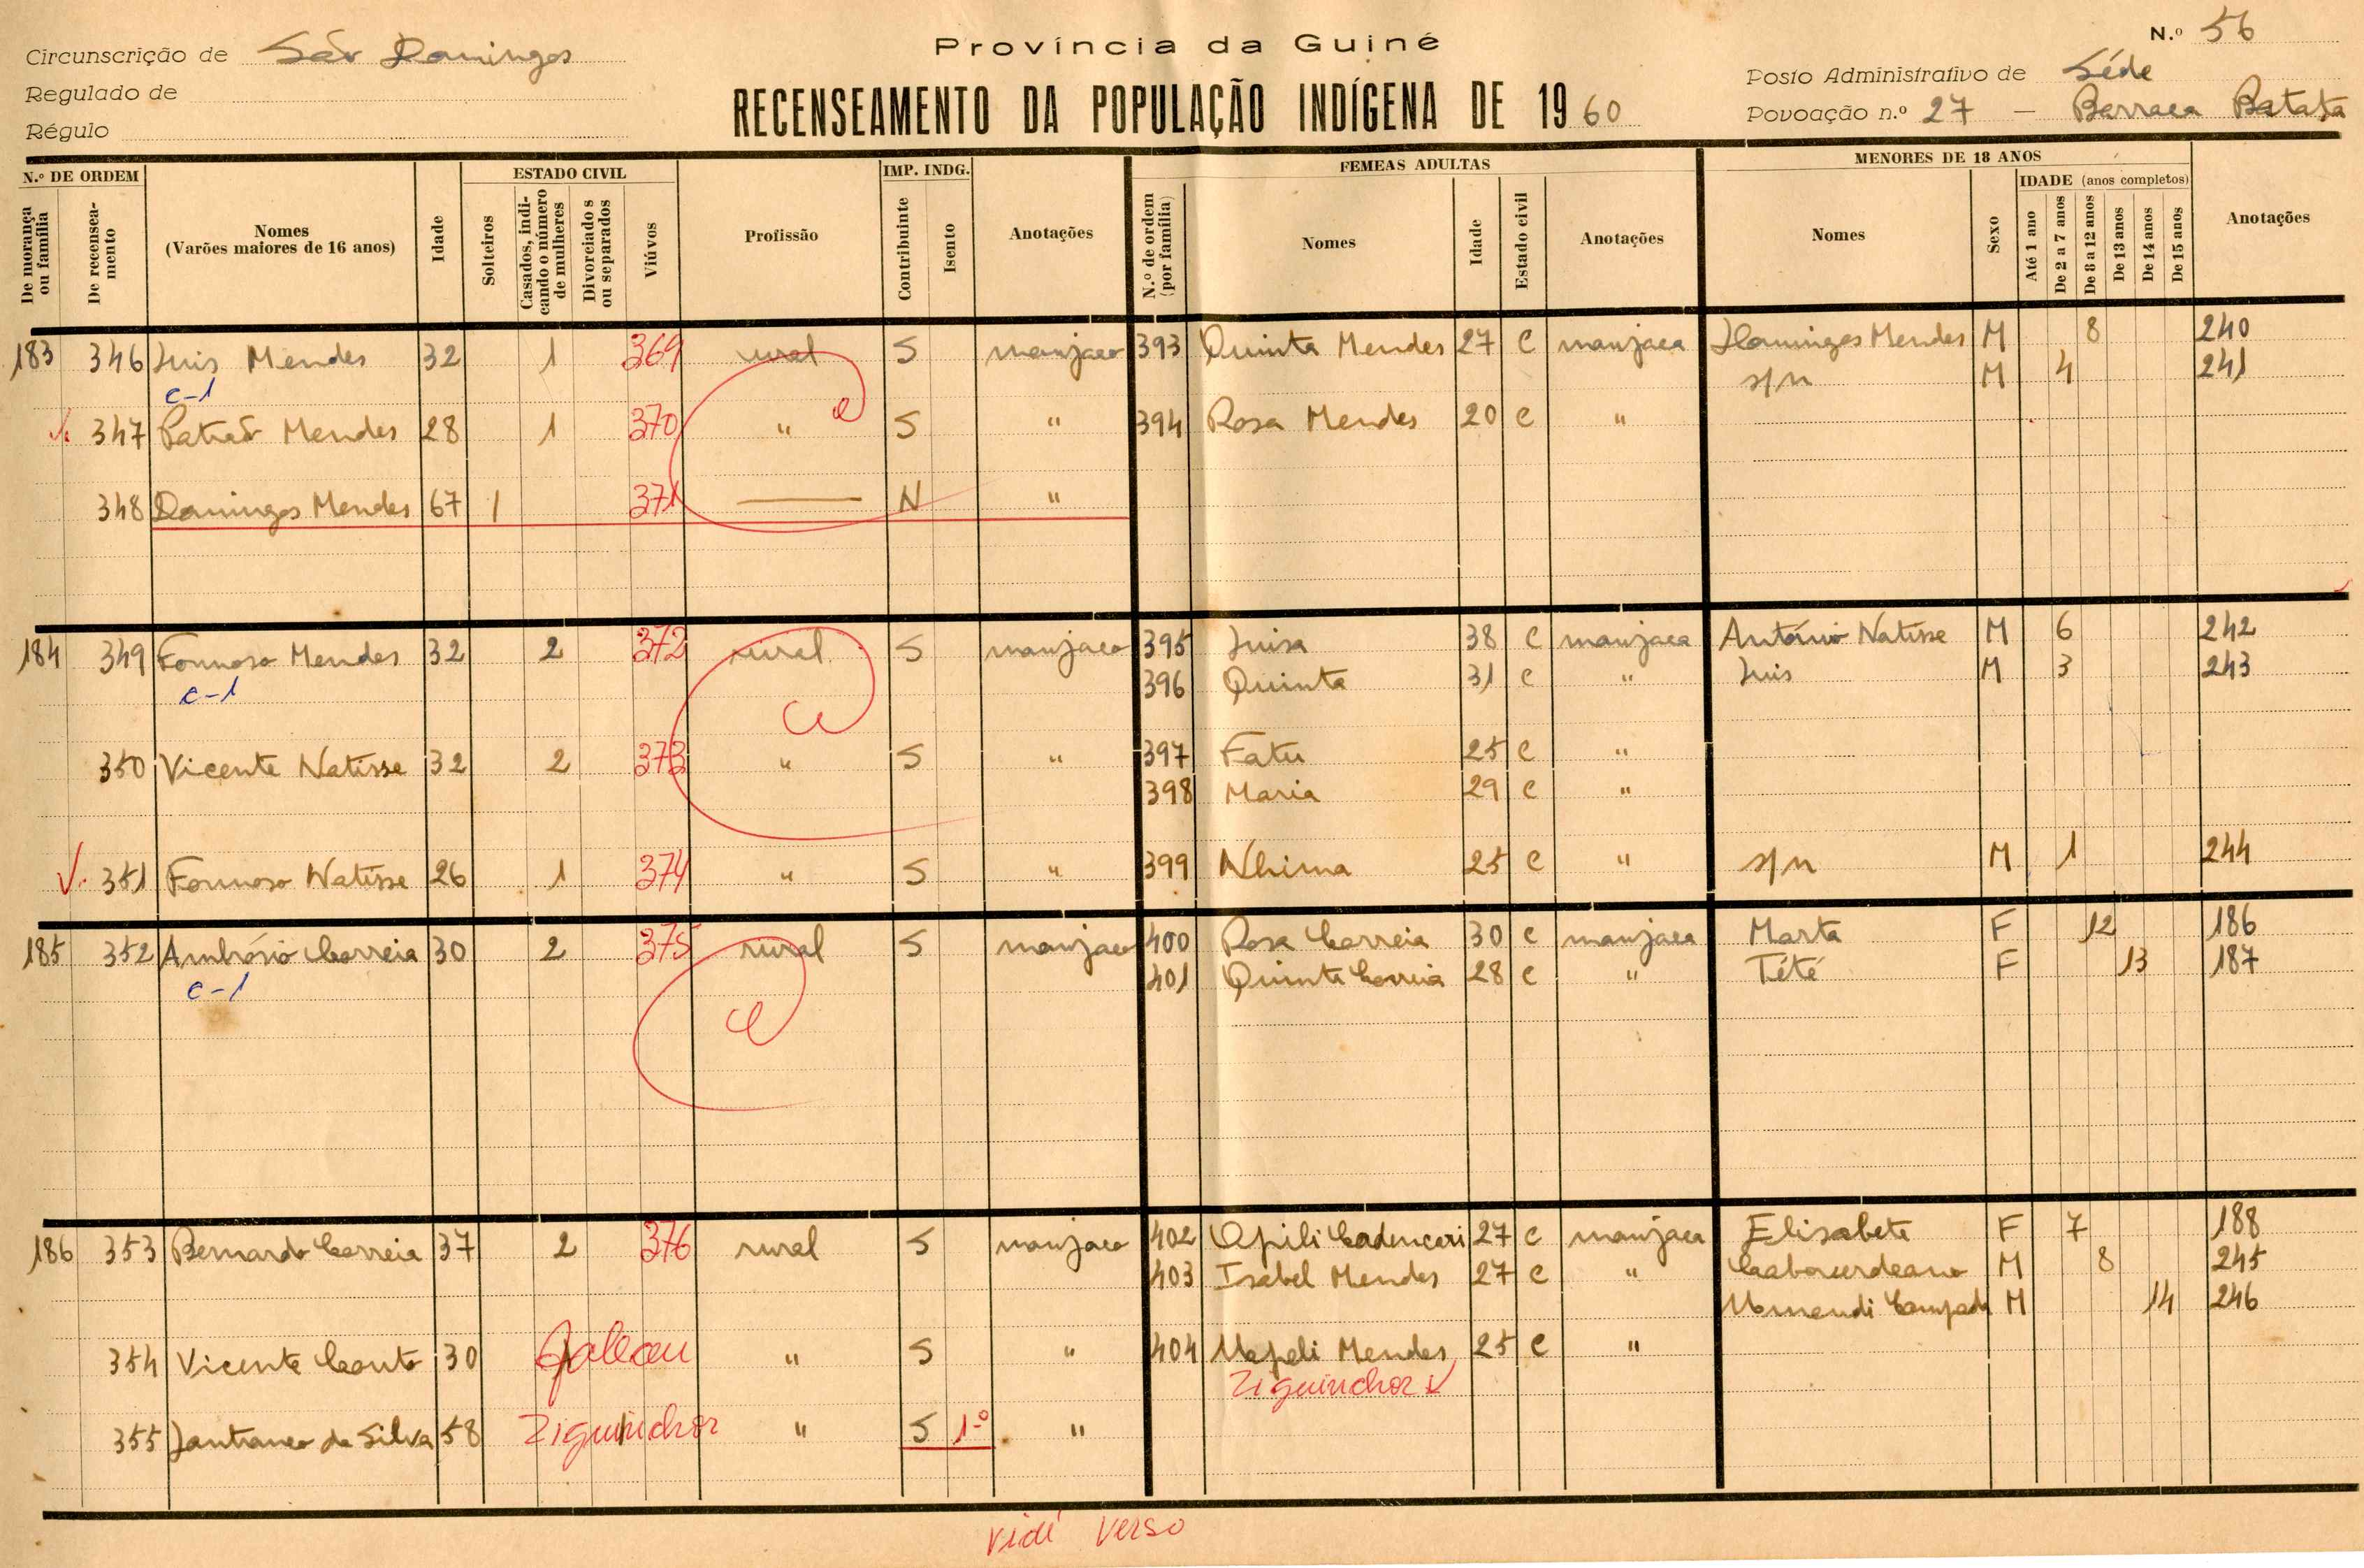 Província da Guiné
N.º 56
Circunscrição de São Domingos
Regulado de
Régulo
RECENSEAMENTO DA POPULAÇÃO INDÍGENA DE 1960
Posto Administrativo de Séde
Povoação n.º 27 — Barraca Batata
N.º DE ORDEM
De morança ou família
De recenseamento
Nomes
(Varões maiores de 16 anos)
Idade
ESTADO CIVIL
Solteiros
Casados, indicando o número de mulheres
Divorciados ou separados
Viúvos
Profissão
IMP. INDG.
Contribuinte
Isento
Anotações
FEMEAS ADULTAS
N.º de ordem (por família)
Nomes
Idade
Estado civil
Anotações
MENORES DE 18 ANOS
Nomes
Sexo
IDADE (anos completos)
Até 1 ano
De 2 a 7 anos
De 8 a 12 anos
De 13 anos
De 14 anos
De 15 anos
Anotações
183 346 Luis Mendes 32 1 369 rural S manjaco 393 Quinta Mendes 27 C manjaca Domingos Mendes M 8 240
c-1 s/n M 4 241
347 Patrão Mendes 28 1 370 " S " 394 Rosa Mendes 20 C "
348 Domingos Mendes 67 1 371 — N "
184 349 Formoso Mendes 32 2 372 rural S manjaco 395 Luisa 38 C manjaca António Natisse M 6 242
c-1 396 Quinta 31 C " Luis M 3 243
350 Vicente Natisse 32 2 373 " S " 397 Fatu 25 C "
398 Maria 29 C "
351 Formoso Natisse 26 1 374 " S " 399 Nhima 25 C " s/n M 1 244
185 352 Ambrósio Correia 30 2 375 rural S manjaco 400 Rosa Correia 30 C manjaca Marta F 12 186
c-1 401 Quinta Correia 28 C " Tété F 13 187
186 353 Bernardo Correia 37 2 376 rural S manjaco 402 27 C manjaca Elisabete F 7 188
403 Isabel Mendes 27 C " M 8 245
M 14 246
354 Vicente Couto 30 " S " 404 Mendes 25 C "
Ziguinchor
355 da Silva 58 Ziguinchor " S 1º "
Vidé verso